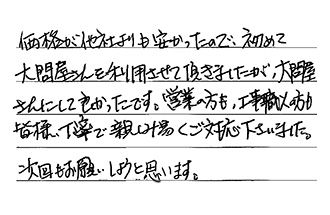 価格が他社よりも安かったので、初めて
大問屋さんを利用させて頂きましたが、大問屋
さんにして良かったです。営業の方も、工事職人の方も
皆様、丁寧で親しみ易くご対応下さいました。
次回もお願いしようと思います。